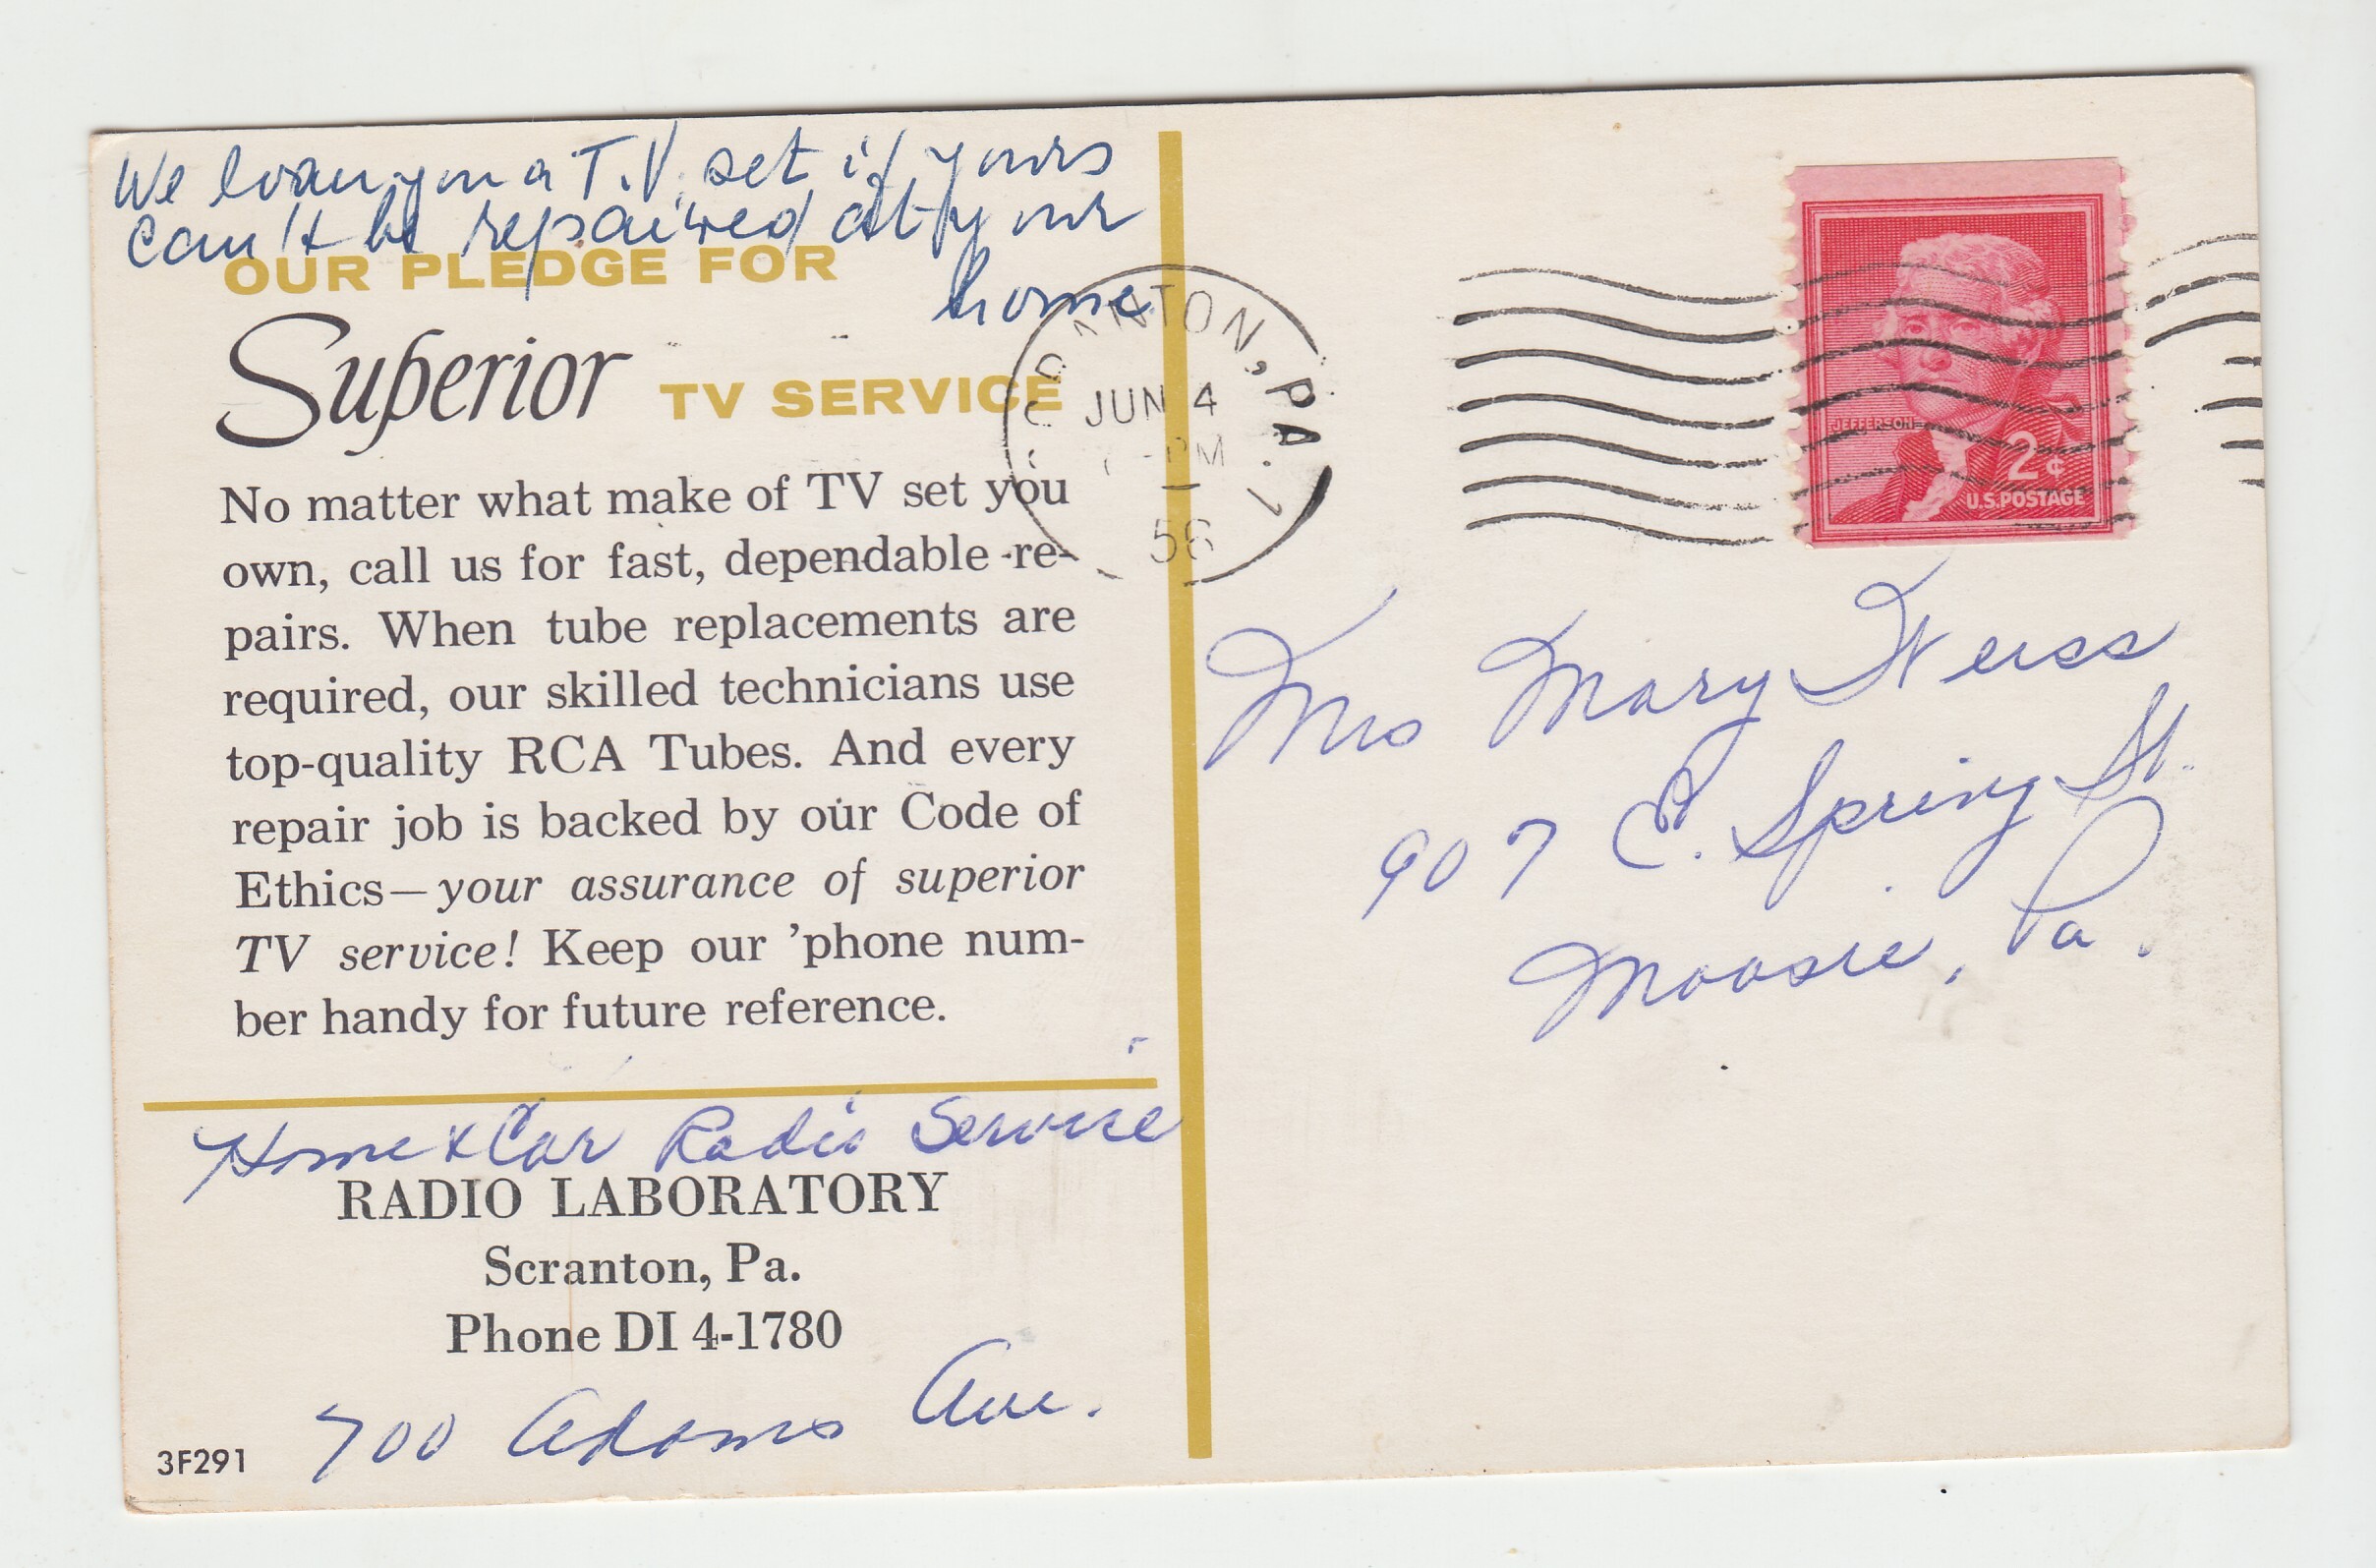 We loan you a T.V. set if yours
can't be repaired at your
home
OUR PLEDGE FOR
Superior TV SERVICE
No matter what make of TV set you
own, call us for fast, dependable re-
pairs. When tube replacements are
required, our skilled technicians use
top-quality RCA Tubes. And every
repair job is backed by our Code of
Ethics—your assurance of superior
TV service! Keep our 'phone num-
ber handy for future reference.
Home & Car Radio Service
RADIO LABORATORY
Scranton, Pa.
Phone DI 4-1780
700 Adams Ave.
3F291
SCRANTON, PA. 1
JUN 4
PM
56
JEFFERSON
2¢
U.S. POSTAGE
Mrs Mary Weiss
907 E. Spring St.
Moosic, Pa.